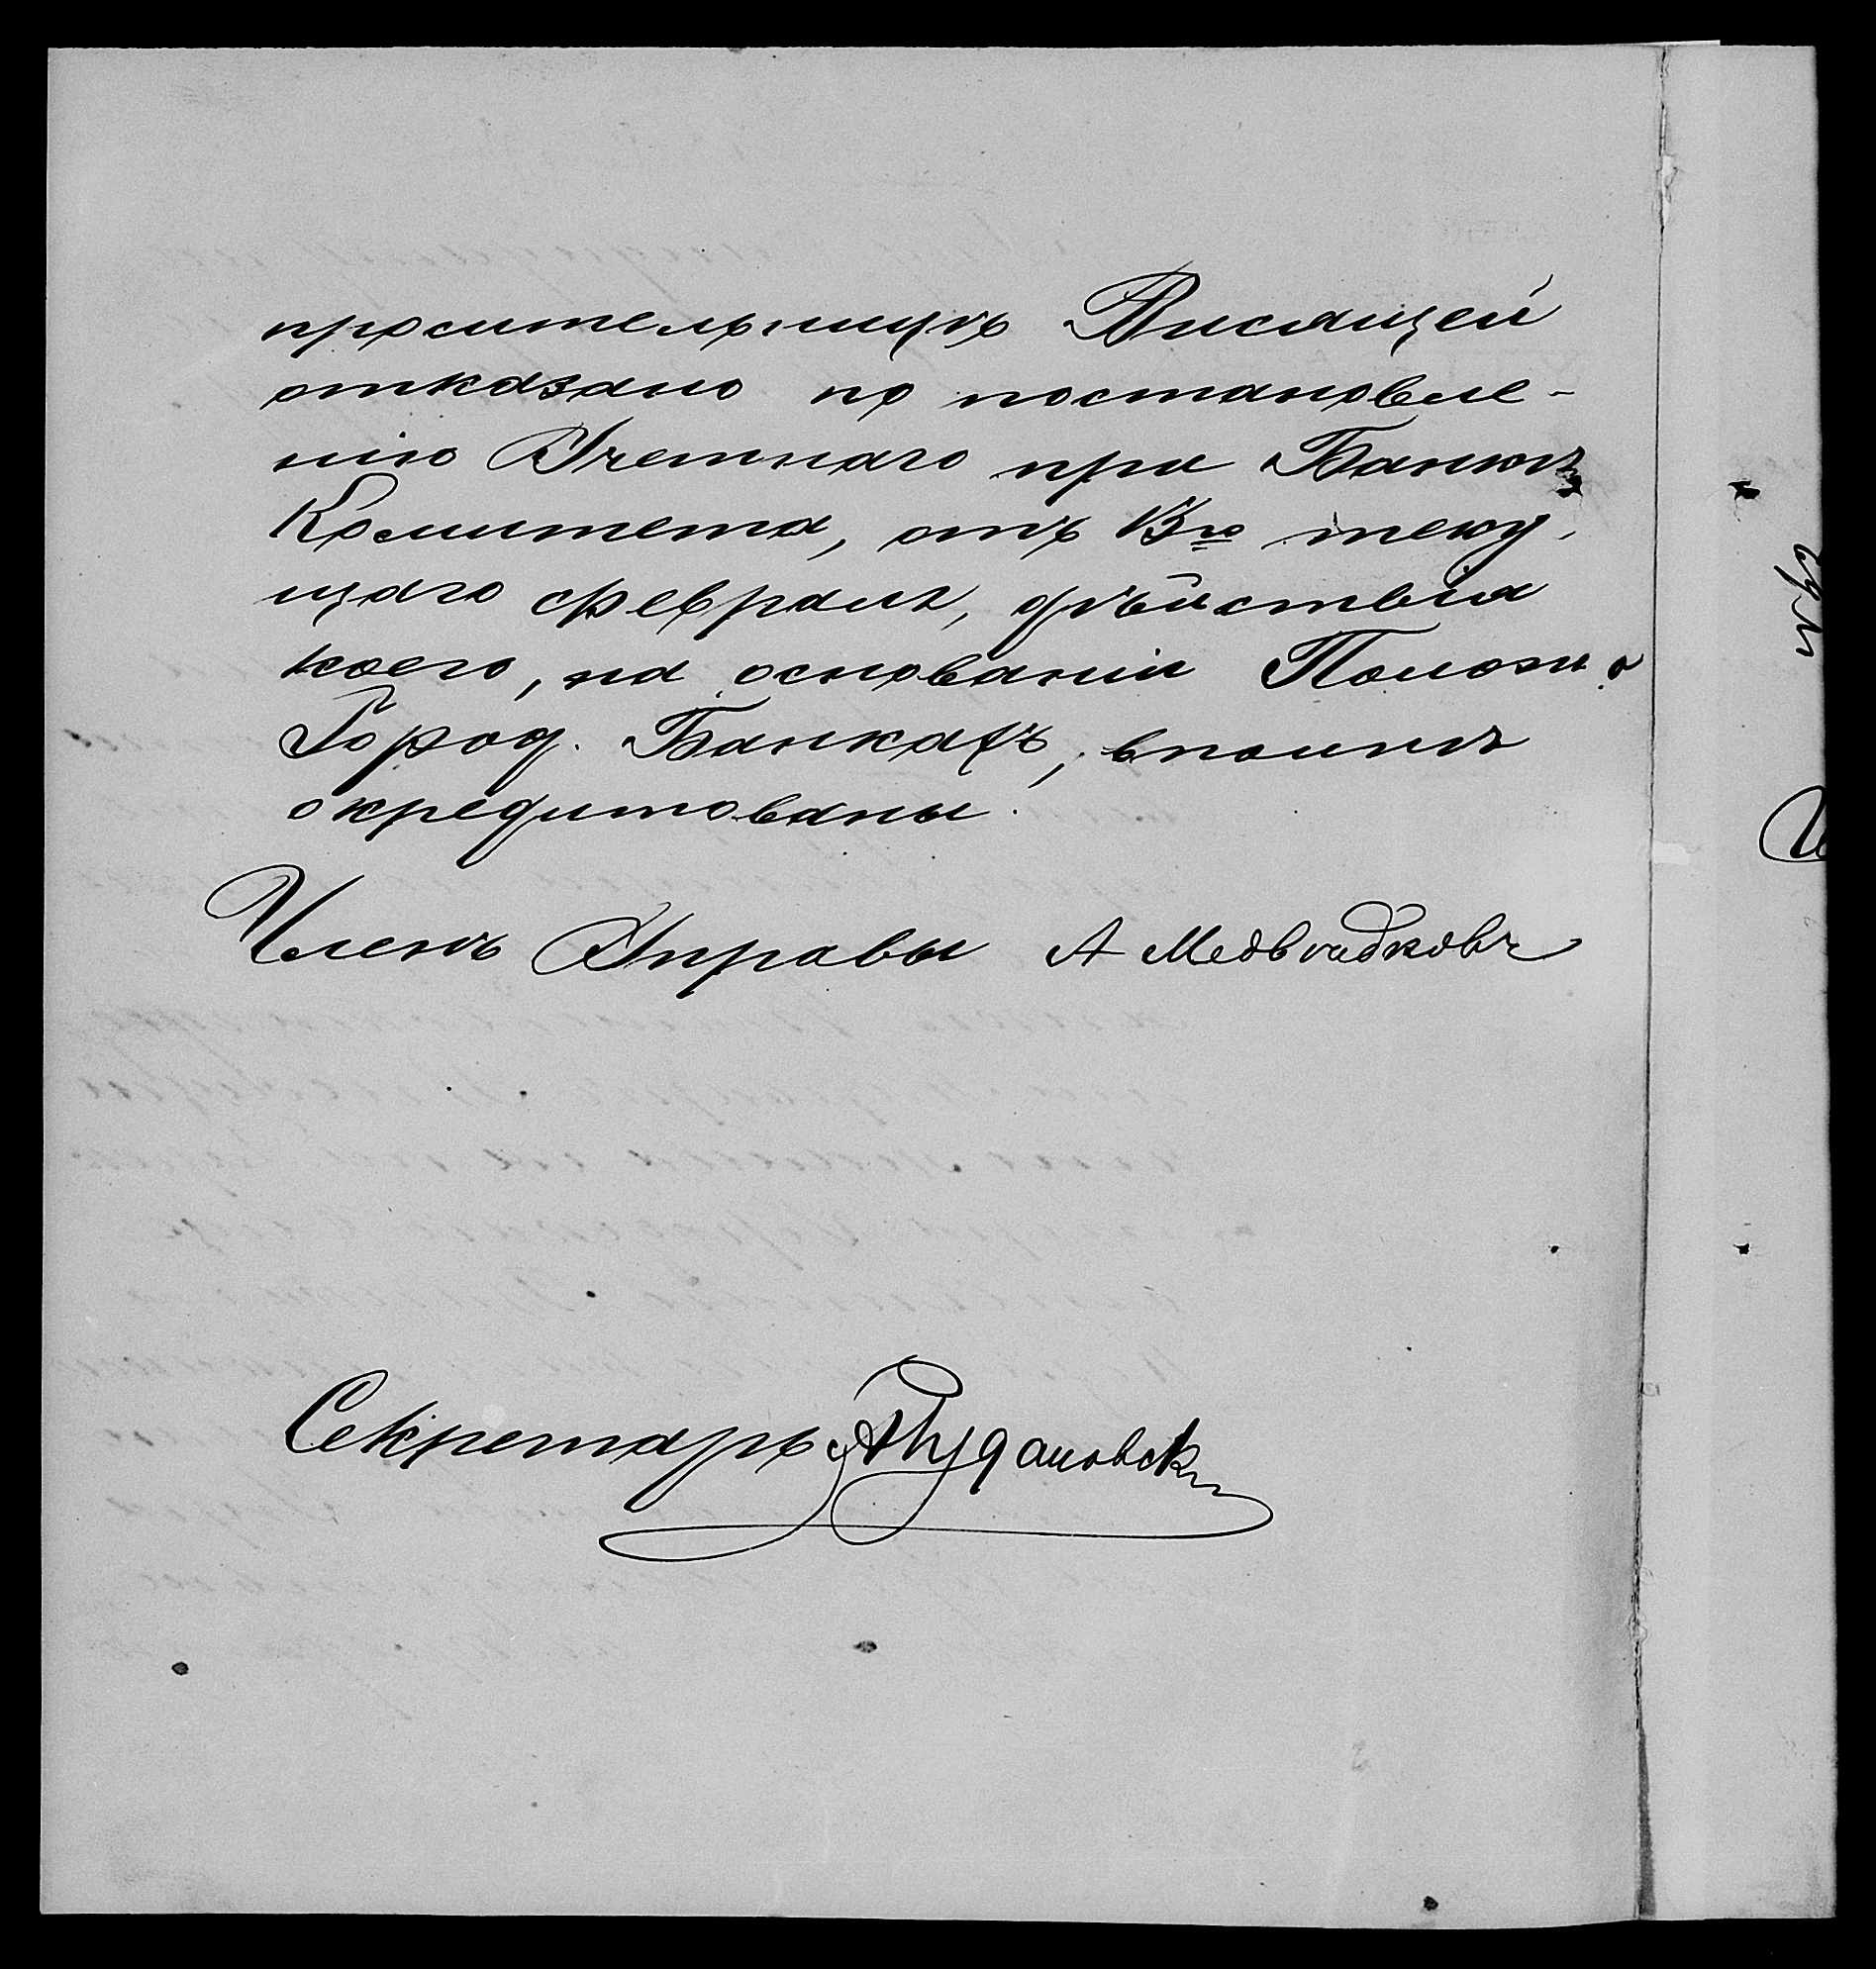 просительницѣ Висящей
отказано по постановле-
нію Учетнаго при Банкѣ
Комитета, отъ 13го теку,
щаго февраля, дѣйствія
коего, на основаніи Полож. о
Город. Банкахъ, вполнѣ
окредитованы.
Членъ Управы А Медвѣдковъ
Секретарь